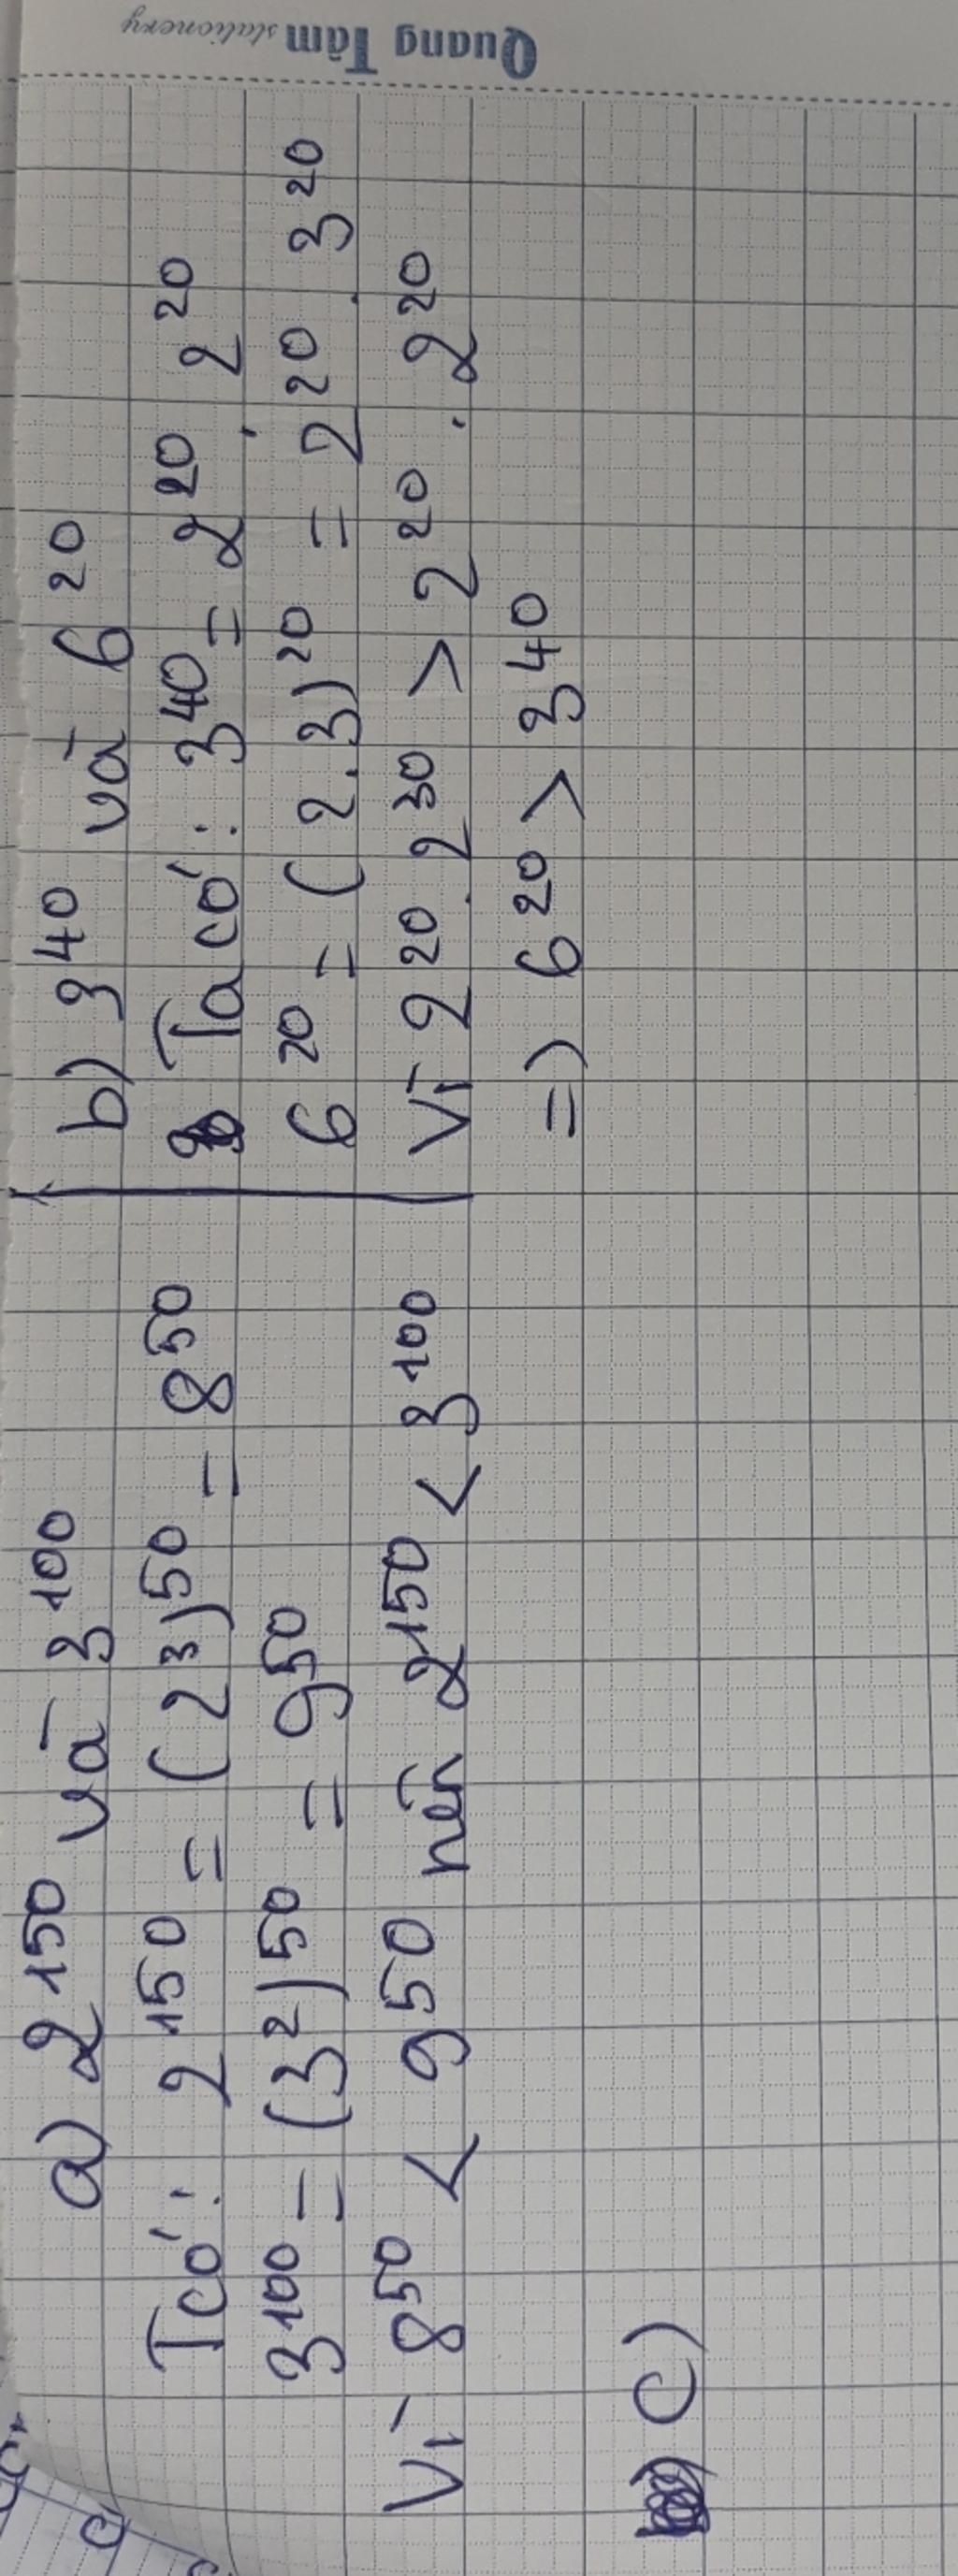 Quang Tâm stationery
a) 2¹⁵⁰ và 3¹⁰⁰
Tcó: 2¹⁵⁰ = (2³)⁵⁰ = 8⁵⁰
3¹⁰⁰ = (3²)⁵⁰ = 9⁵⁰
Vì 8⁵⁰ < 9⁵⁰ nên 2¹⁵⁰ < 3¹⁰⁰
b) 3⁴⁰ và 6²⁰
Ta có: 3⁴⁰ = 2²⁰ . 2²⁰
6²⁰ = (2.3)²⁰ = 2²⁰ . 3²⁰
Vì 2²⁰ . 2³⁰ > 2²⁰ . 2²⁰
=) 6²⁰ > 3⁴⁰
c)